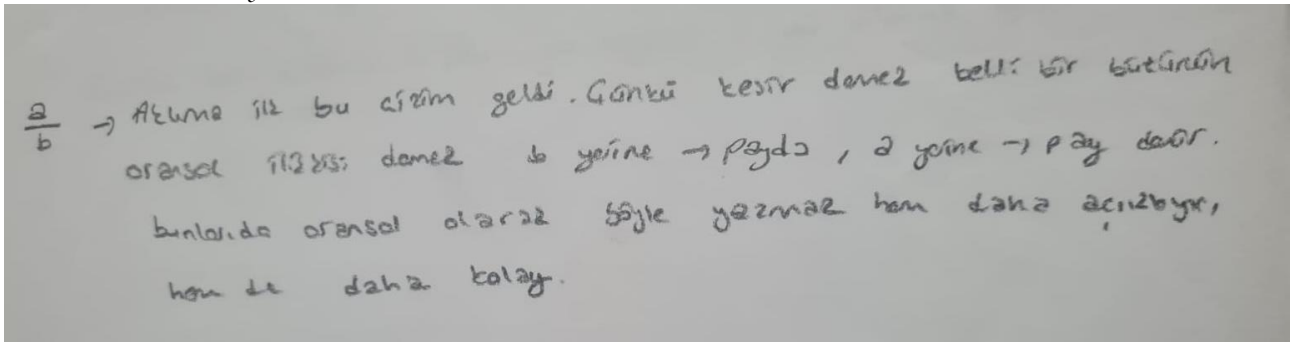 a/b → Aklıma ilk bu çizim geldi. Çünkü kesir demek belli bir bütünün
oransal ilişkisi demek b yerine → payda, a yerine → pay denir.
bunlarıda oransal olarak böyle yazmak hem daha açıklayıcı,
hem de daha kolay.